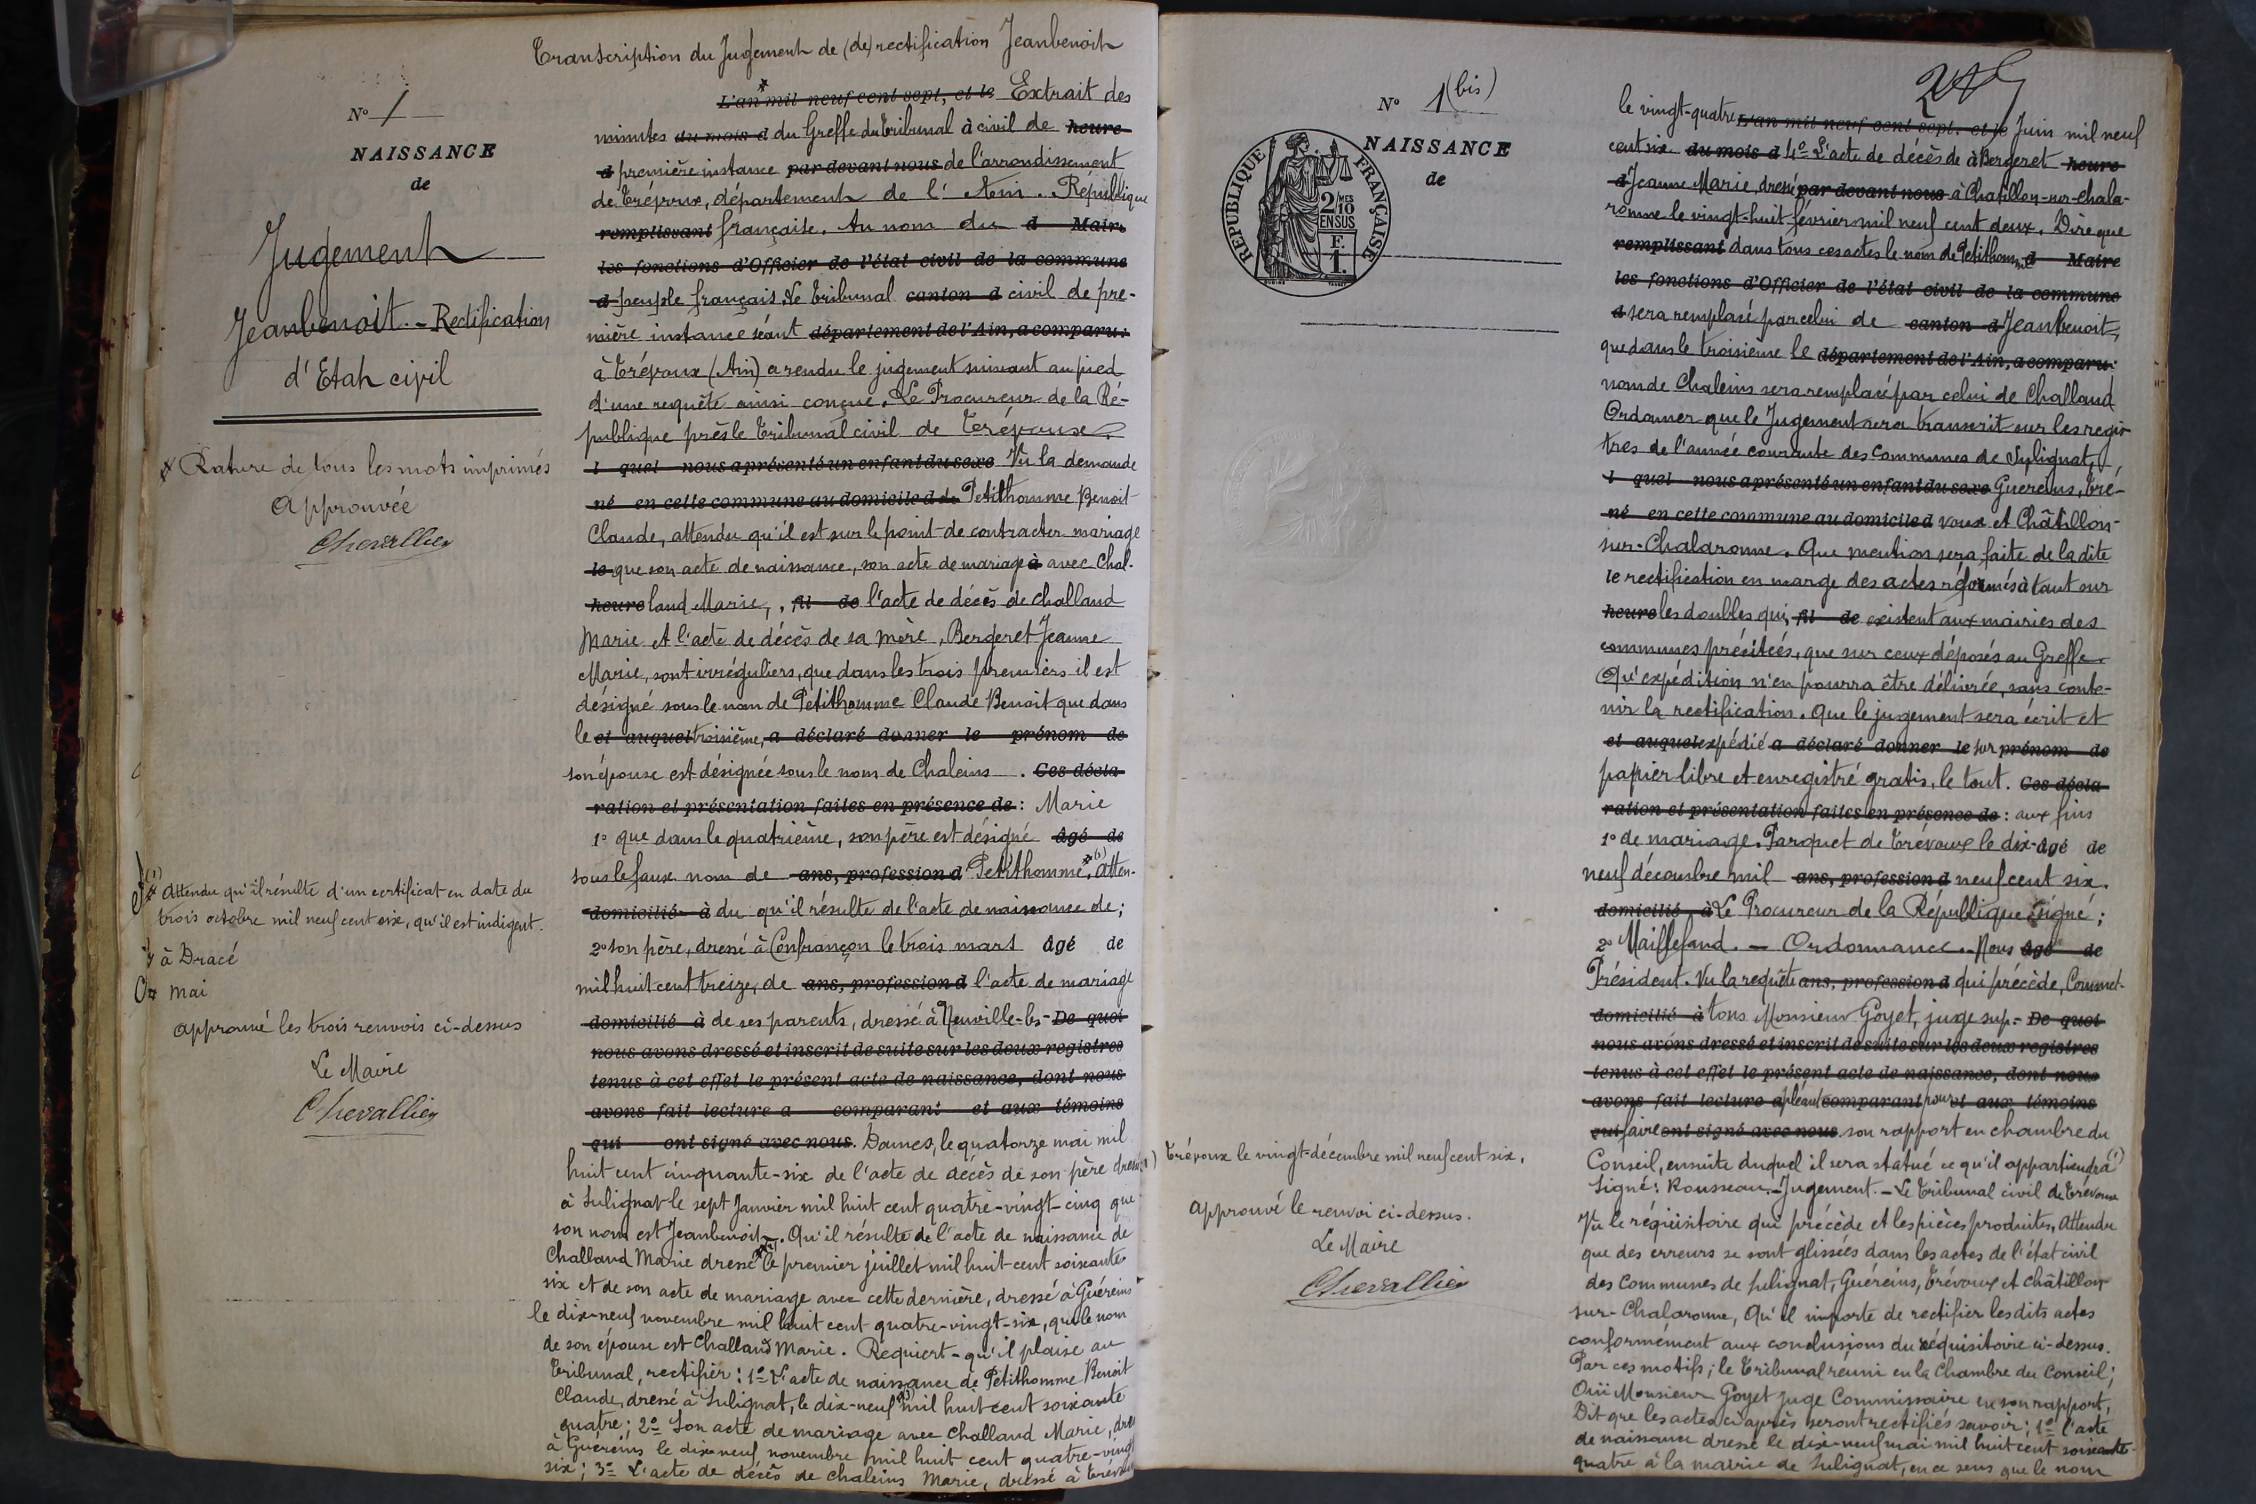 Transcription du Jugement de (de) rectification Jeanbenoit
N° 1
NAISSANCE
de
Jugement
Jeanbenoit. - Rectification
d'Etat civil
* Rature de tous les mots imprimés
Approuvée
Chevallier
(1) Attendu qu'il résulte d'un certificat en date du
trois octobre mil neuf cent six, qu'il est indigent.
à Dracé
mai
approuvé les trois renvois ci-dessus
Le Maire
Chevallier
L'an mil neuf cent sept, et le Extrait des
minutes du mois d du Greffe du Tribunal à civil de heure
d première instance par devant nous de l'arrondissement
de Trévoux, département de l'Ain. République
remplissant française. Au nom du d Maire
les fonctions d'Officier de l'état civil de la commune
d peuple français, Le Tribunal canton d civil de pre-
mière instance séant département de l'Ain, a comparu:
à Trévoux (Ain) a rendu le jugement suivant au pied
d'une requête ainsi conçue. Le Procureur de la Ré-
publique près le Tribunal civil de Trévoux.
l quel nous a présenté un enfant du sexe Vu la demande
né en cette commune au domicile d de Petithomme Benoit
Claude, attendu qu'il est sur le point de contracter mariage
le que son acte de naissance, son acte de mariage à avec Chal-
heure land Marie, , fil de l'acte de décès de Challand
Marie et l'acte de décès de sa mère, Bergeret Jeanne
Marie, sont irréguliers, que dans les trois premiers il est
désigné sous le nom de Petithomme Claude Benoit que dans
le et auquel troisième, a déclaré donner le prénom de
son épouse est désignée sous le nom de Chaleins . Ces décla-
ration et présentation faites en présence de : Marie
1° que dans le quatrième, son père est désigné âgé de
sous le faux nom de ans, profession d Petithomme, (1) Atten-
domicilié à du qu'il résulte de l'acte de naissance de;
2° son père, dressé à Confrançon le trois mars âgé de
mil huit cent treize, de ans, profession d l'acte de mariage
domicilié à de ses parents, dressé à Neuville-les- De quoi
nous avons dressé et inscrit de suite sur les deux registres
tenus à cet effet le présent acte de naissance, dont nous
avons fait lecture a comparant et aux témoins
qui ont signé avec nous. Dames, le quatorze mai mil
huit cent cinquante-six de l'acte de décès de son père dressé
à Sulignat le sept Janvier mil huit cent quatre-vingt-cinq que
son nom est Jeanbenoit. Qu'il résulte de l'acte de naissance de
Challand Marie dressé le premier juillet mil huit cent soixante
six et de son acte de mariage avec cette dernière, dressé à Guéreins
le dix-neuf novembre mil huit cent quatre-vingt-six, que le nom
de son épouse est Challand Marie. Requiert qu'il plaise au
Tribunal, rectifier: 1° L'acte de naissance de Petithomme Benoit
Claude, dressé à Sulignat, le dix-neuf mil huit cent soixante
quatre; 2° Son acte de mariage avec Challand Marie, dressé
à Guéreins le dix-neuf novembre mil huit cent quatre-vingt
six; 3° L'acte de décès de Chaleins Marie, dressé à Trévoux
N° 1 (bis)
NAISSANCE
de
RÉPUBLIQUE FRANÇAISE
2 MES
10
EN SUS
F.
1.
(1) Trévoux le vingt-décembre mil neuf cent six.
approuvé le renvoi ci-dessus.
Le Maire
Chevallier
le vingt-quatre L'an mil neuf cent sept, et le Juin mil neuf
cent six du mois d 4° L'acte de décès de à Bergeret heure
d Jeanne Marie, dressé par devant nous à Chatillon-sur-Chala-
ronne le vingt-huit février mil neuf cent deux. Dire que
remplissant dans tous ces actes le nom de Petithomme d Maire
les fonctions d'Officier de l'état civil de la commune
d sera remplacé par celui de canton d Jeanbenoit,
que dans le troisième le département de l'Ain, a comparu:
nom de Chaleins sera remplacé par celui de Challand
Ordonner que le Jugement sera transcrit sur les regis-
tres de l'année courante des Communes de Sulignat,
l quel nous a présenté un enfant du sexe Guereins, Tré-
né en cette commune au domicile d voux et Châtillon-
sur-Chalaronne. Que mention sera faite de la dite
le rectification en marge des actes réformés à tant sur
heure les doubles qui, fil de existent aux mairies des
communes précitées, que sur ceux déposés au Greffe.
Qu'expédition n'en pourra être délivrée, sans conte-
nir la rectification. Que le jugement sera écrit et
et auquel expédié a déclaré donner le sur prénom de
papier libre et enregistré gratis, le tout. Ces décla-
ration et présentation faites en présence de : aux fins
1° de mariage. Parquet de Trévoux le dix-âgé de
neuf décembre mil ans, profession d neuf cent six.
domicilié à Le Procureur de la République signé;
2° Maillefaud. - Ordonnance. - Nous âgé de
Président. Vu la requête ans, profession d qui précède, Commet-
domicilié à tons Monsieur Goyet, juge sup- De quoi
nous avons dressé et inscrit de suite sur les deux registres
tenus à cet effet le présent acte de naissance, dont nous
avons fait lecture a pléant comparant pour et aux témoins
qui faire ont signé avec nous. son rapport en chambre du
Conseil, ensuite duquel il sera statué ce qu'il appartiendra (1)
Signé: Rousseau. - Jugement. - Le Tribunal civil de Trévoux
Vu le réquisitoire qui précède et les pièces produites, Attendu
que des erreurs se sont glissées dans les actes de l'état civil
des Communes de Sulignat, Guéreins, Trévoux et Châtillon
sur-Chalaronne, Qu'il importe de rectifier les dits actes
conformement aux conclusions du réquisitoire ci-dessus.
Par ces motifs; le Tribunal réuni en la Chambre du Conseil;
Ouï Monsieur Goyet Juge Commissaire en son rapport,
Dit que les actes ci après seront rectifiés savoir; 1° l'acte
de naissance dressé le dix-neuf mai mil huit cent soixante-
quatre à la mairie de Sulignat, en ce sens que le nom